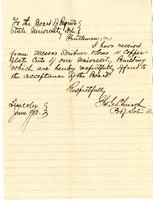 To the Board of Regents
State University, Neb.
Gentlemen;
I have received
from Messrs Scribner Sons 4 Copper-
plate Cuts of our University Building
which are hereby respectfully offered to
the acceptance of the Board.
Respectfully
Lincoln
June 9